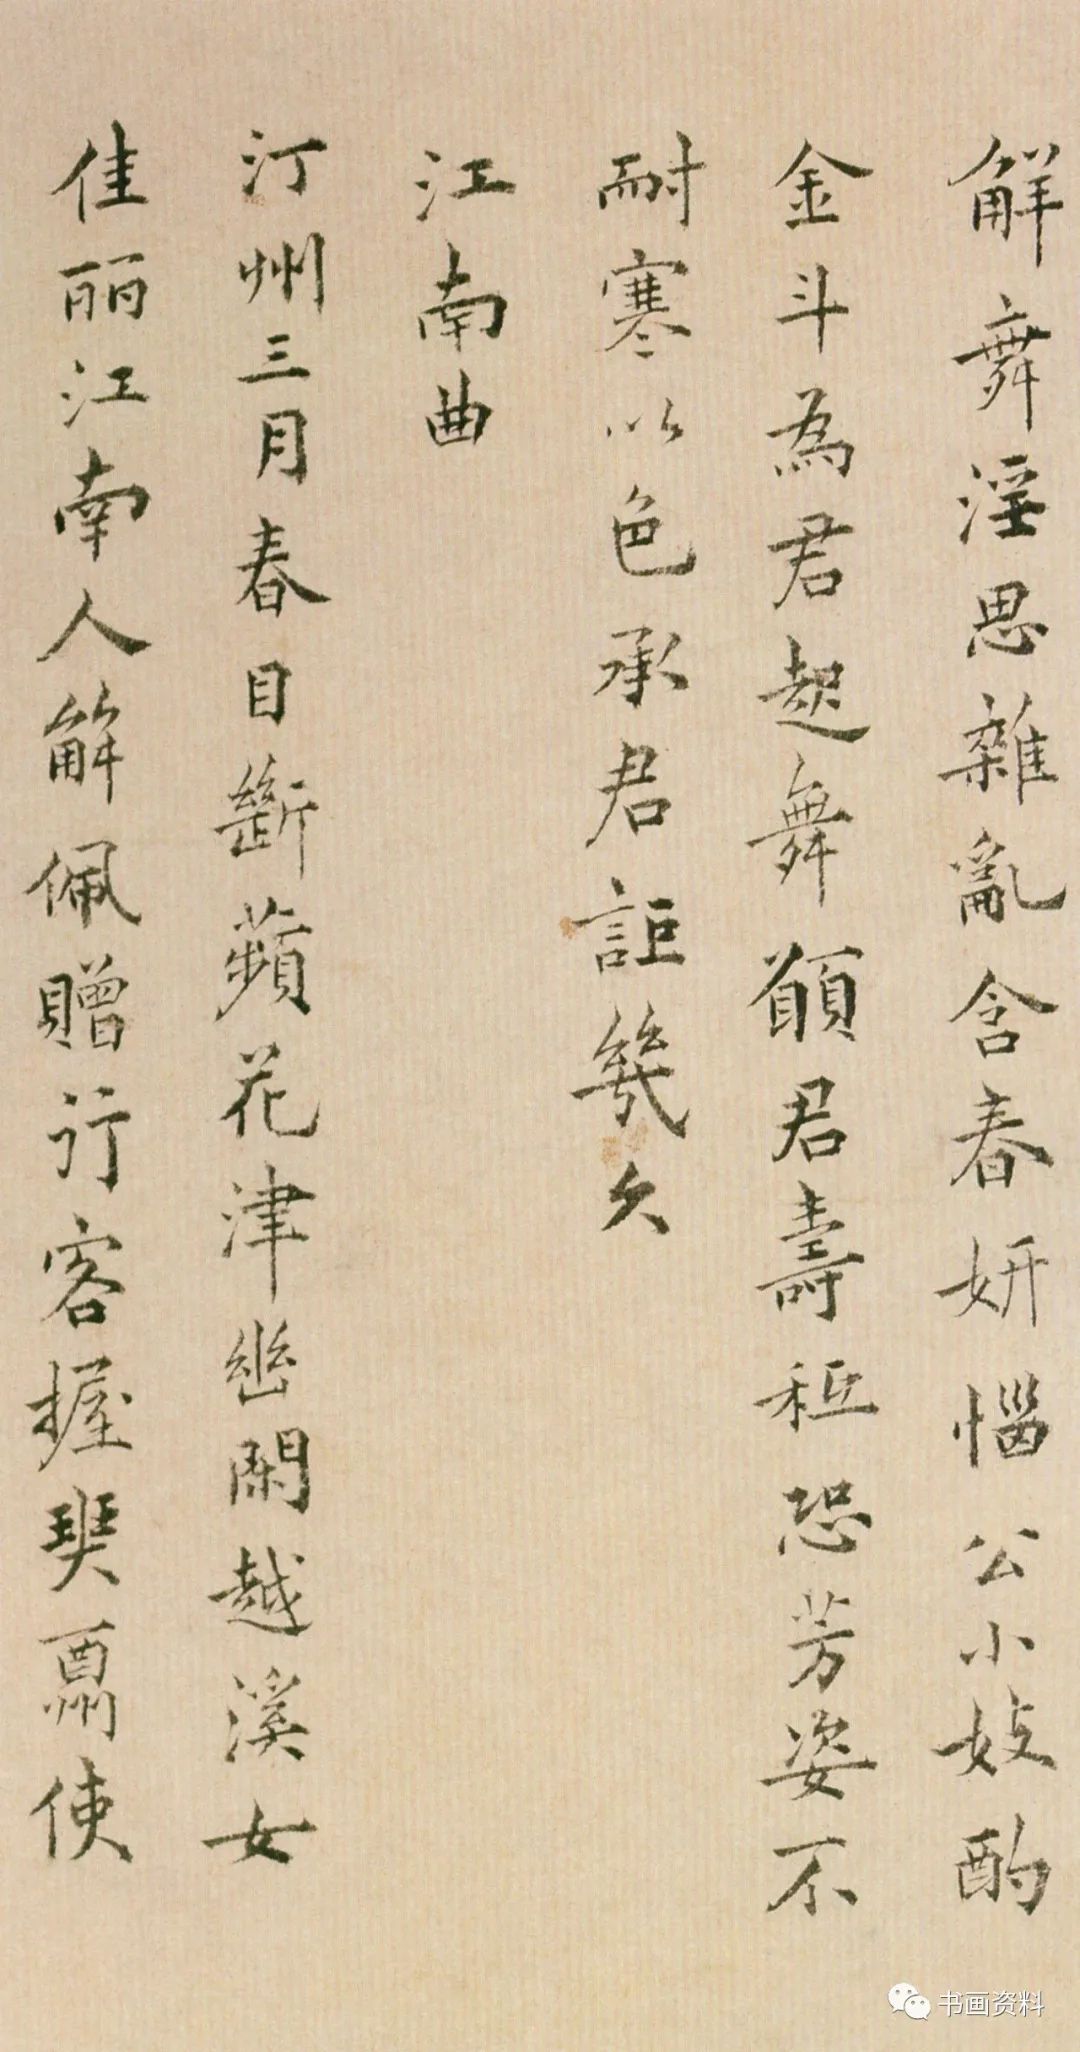 解舞淫思雜亂含春妍惱公小妓酌
金斗為君起舞願君壽秖恐芳姿不
耐寒以色承君詎幾久
江南曲
汀州三月春目斷蘋花津幽閑越溪女
佳丽江南人解佩贈行客握 使
书画资料